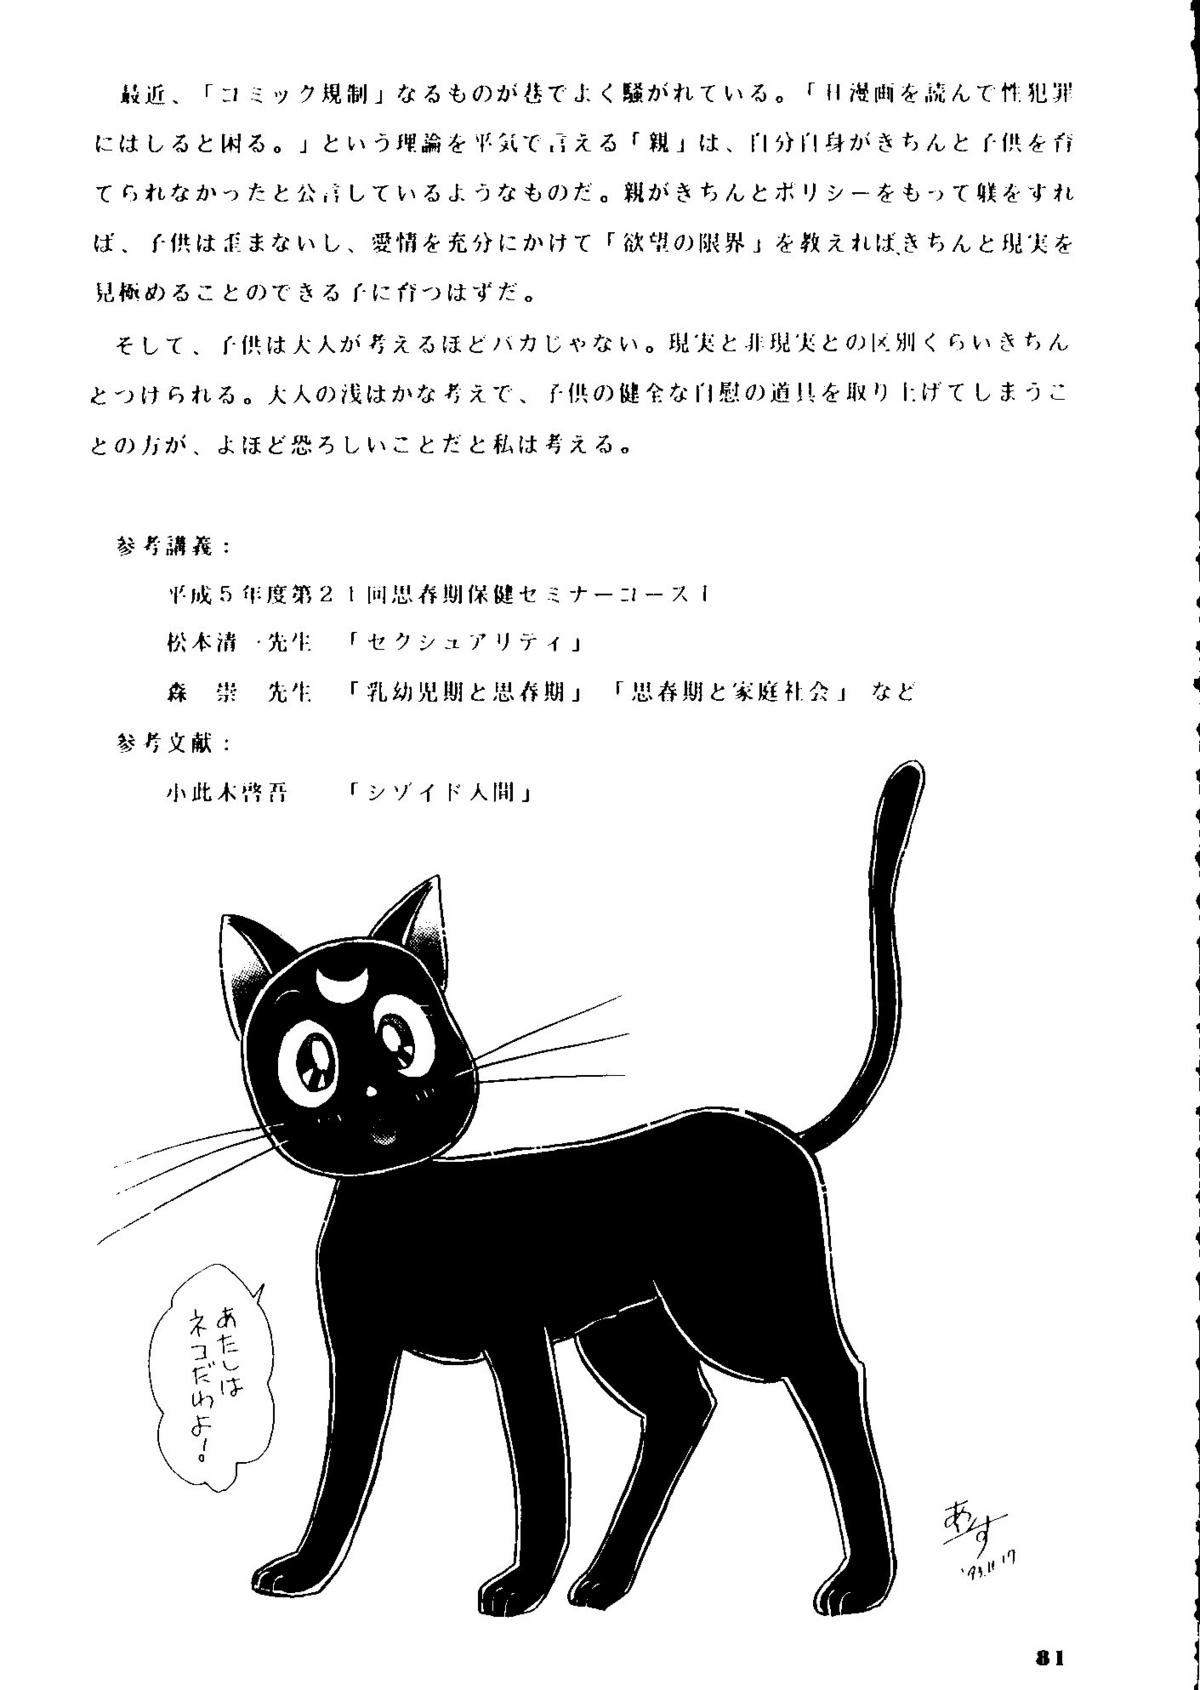 最近、「コミック規制」なるものが巷でよく騒がれている。「H漫画を読んで性犯罪
にはしると困る。」という理論を平気で言える「親」は、自分自身がきちんと子供を育
てられなかったと公言しているようなものだ。親がきちんとポリシーをもって躾をすれ
ば、子供は歪まないし、愛情を充分にかけて「欲望の限界」を教えれば、きちんと現実を
見極めることのできる子に育つはずだ。
そして、子供は大人が考えるほどバカじゃない。現実と非現実との区別くらいきちん
とつけられる。大人の浅はかな考えで、子供の健全な自慰の道具を取り上げてしまうこ
との方が、よほど恐ろしいことだと私は考える。
参考講義：
平成5年度第21回思春期保健セミナーコースI
松本清一先生　「セクシュアリティ」
森　崇　先生　「乳幼児期と思春期」「思春期と家庭社会」など
参考文献：
小此木啓吾　　「シゾイド人間」
あたしは
ネコだわよ！。
あくす
'93.11.17
81